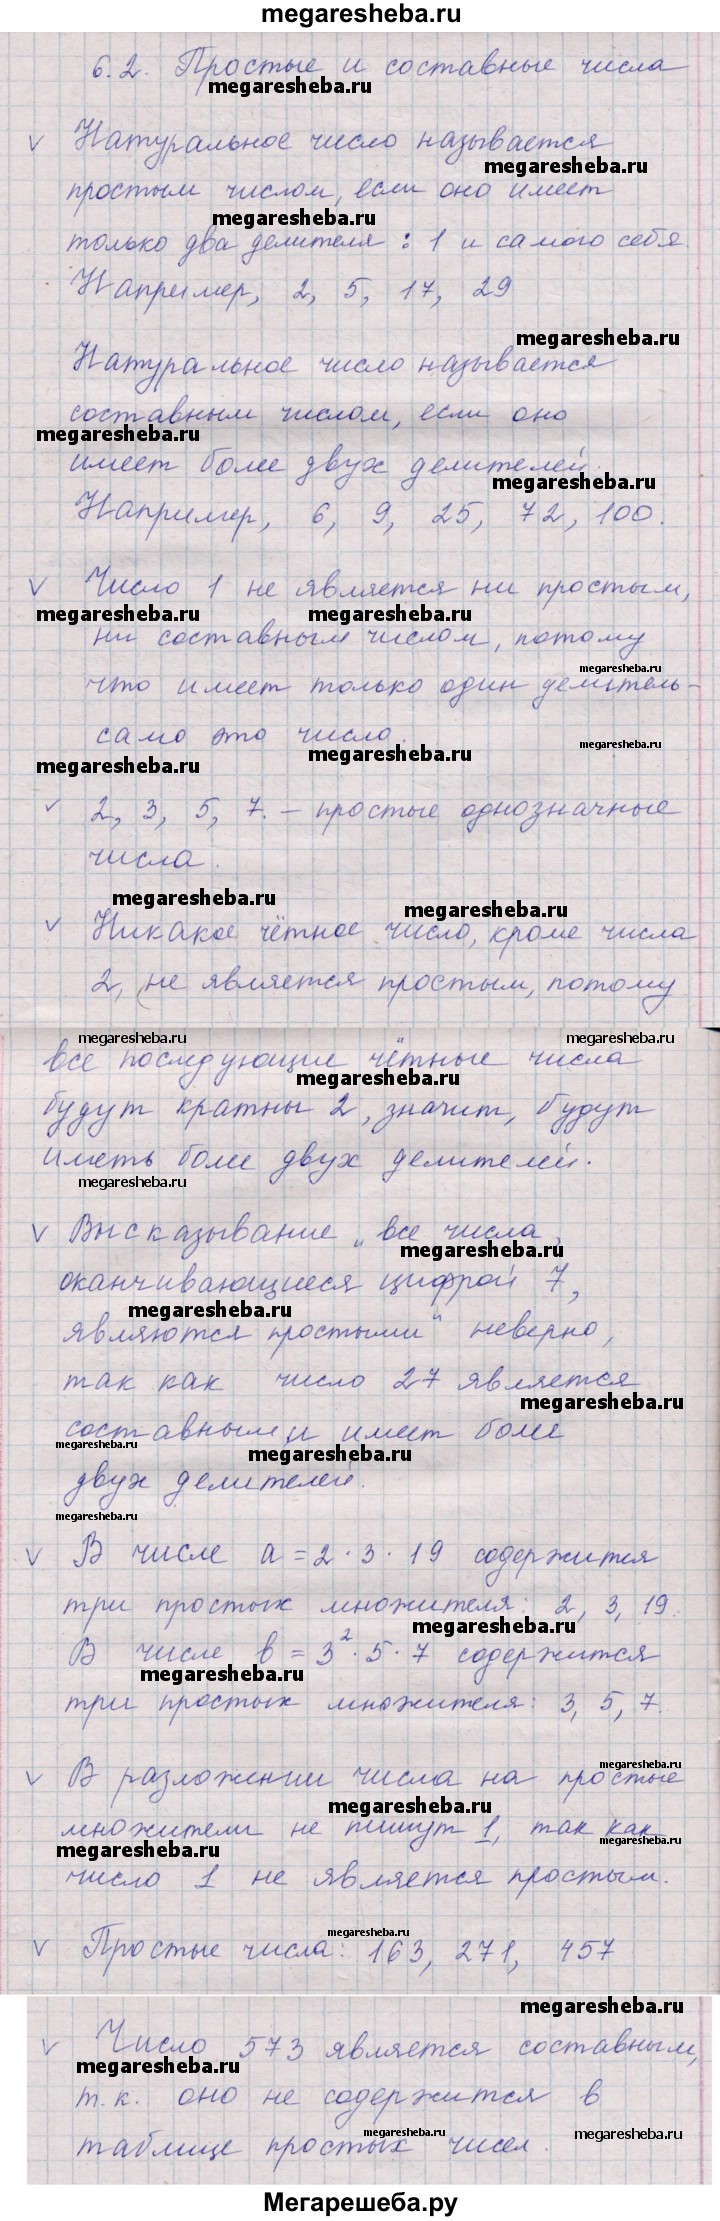 megaresheba.ru
6.2. Простые и составные числа
megaresheba.ru
V Натуральное число называется
megaresheba.ru
простым числом, если оно имеет
megaresheba.ru
только два делителя: 1 и самого себя.
Например, 2, 5, 17, 29
megaresheba.ru
Натуральное число называется
составным числом, если оно
megaresheba.ru
имеет более двух делителей.
megaresheba.ru
Например, 6, 9, 25, 72, 100.
V Число 1 не является ни простым,
megaresheba.ru megaresheba.ru
ни составным числом, потому
megaresheba.ru
что имеет только один делитель-
само это число.
megaresheba.ru
megaresheba.ru
megaresheba.ru
V 2, 3, 5, 7. – простые однозначные
числа.
megaresheba.ru
megaresheba.ru
V Никакое чётное число, кроме числа
2, не является простым, потому
megaresheba.ru megaresheba.ru
все последующие чётные числа
megaresheba.ru
будут кратны 2, значит, будут
иметь более двух делителей.
megaresheba.ru
V Высказывание „все числа,
megaresheba.ru
оканчивающиеся цифрой 7,
megaresheba.ru
являются простыми" неверно,
так как число 27 является
megaresheba.ru
составным и имеет более
megaresheba.ru
megaresheba.ru
двух делителей.
megaresheba.ru
V В числе a = 2 · 3 · 19 содержится
три простых множителя: 2, 3, 19.
megaresheba.ru
В числе b = 3² · 5 · 7 содержится
megaresheba.ru
три простых множителя: 3, 5, 7.
megaresheba.ru
V В разложении числа на простые
megaresheba.ru
множители не пишут 1, так как
megaresheba.ru
megaresheba.ru
число 1 не является простым.
megaresheba.ru
V Простые числа: 163, 271, 457
megaresheba.ru
V Число 573 является составным,
megaresheba.ru
т.к. оно не содержится в
megaresheba.ru
megaresheba.ru
таблице простых чисел.
Мегарешеба.ру